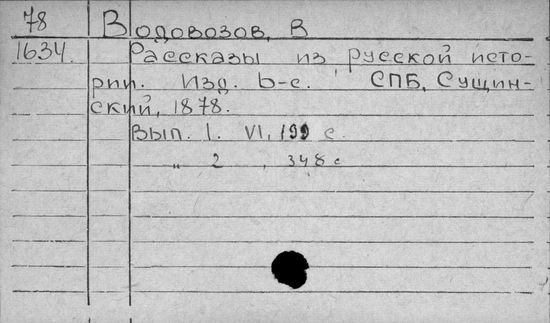 78 Водовозов, В
1634. Рассказы из русской исто-
рии. Изд. 6-е. СПБ, Сущин-
ский, 1878.
Вып. 1. VI, 199 с.
" 2 , 348 с